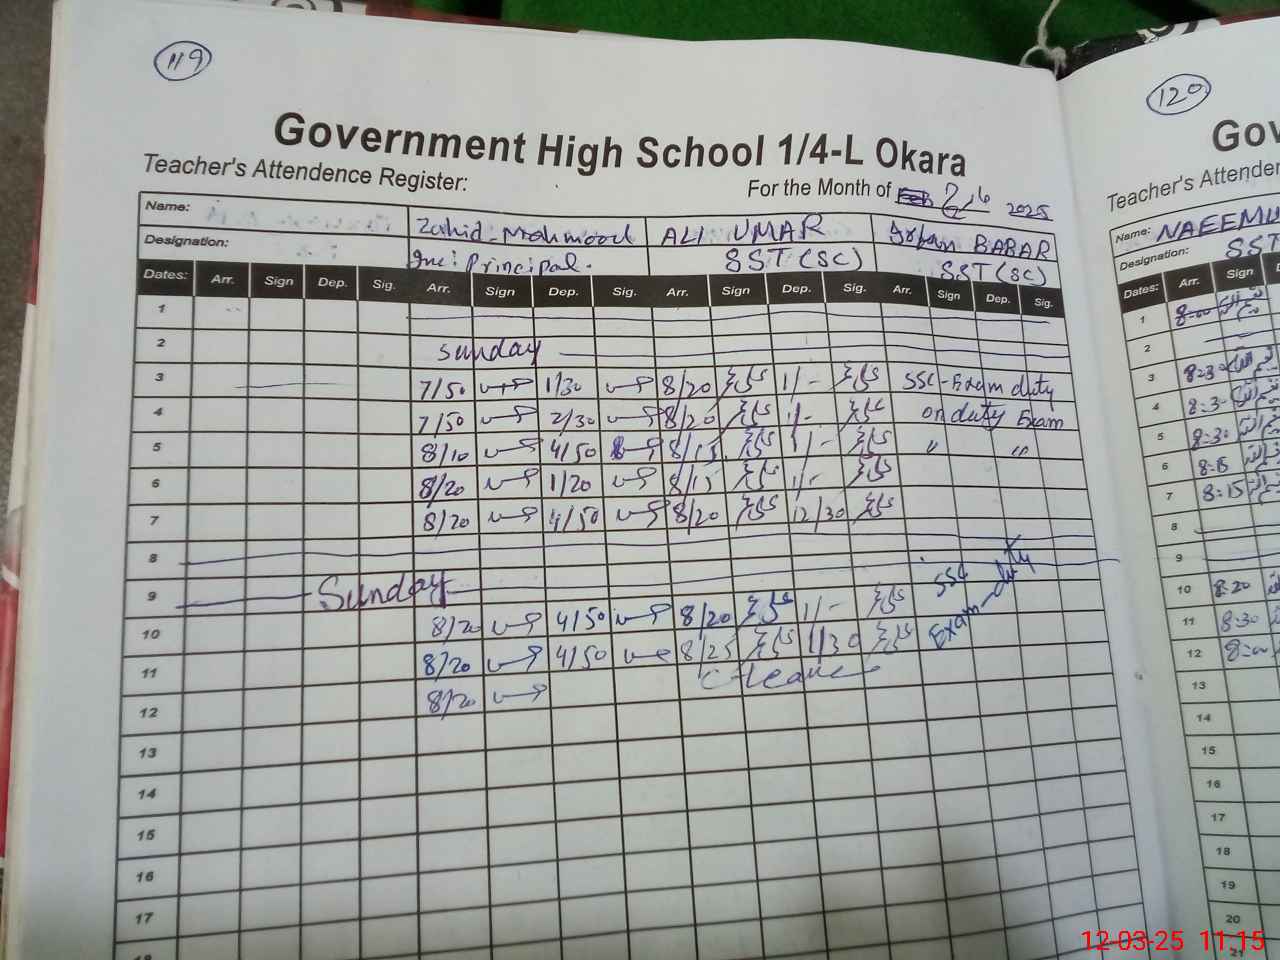 119
Government High School 1/4-L Okara
Teacher's Attendence Register:
For the Month of 2025
Name: Zahid Mahmood ALI UMAR BABAR
Designation: Inc: Principal. SST (SC) SST (SC)
Dates: Arr. Sign Dep. Sig. Arr. Sign Dep. Sig. Arr. Sign Dep. Sig. Arr. Sign Dep. Sig.
1
2 Sunday
3 7/50 1/30 8/20 1/- SSC-Exam duty
4 7/50 2/30 8/20 1/- on duty Exam
5 8/10 4/50 8/15 1/- " "
6 8/20 1/20 8/15 1/-
7 8/20 4/50 8/20 12/30
8
9 Sunday
10 8/20 4/50 8/20 1/- SSC
11 8/20 4/50 8/25 1/30 Exam-duty
12 8/20 leave
13
14
15
16
17
18
120
Gov
Teacher's Attende
Name: NAEEMU
Designation: SST
Dates: Arr. Sign
1 8-00
2
3 8:30
4 8:30
5 8:30
6 8:15
7 8:15
8
9
10 8:20
11 8:30
12 8:00
13
14
15
16
17
18
19
20
21
12-03-25 11.15